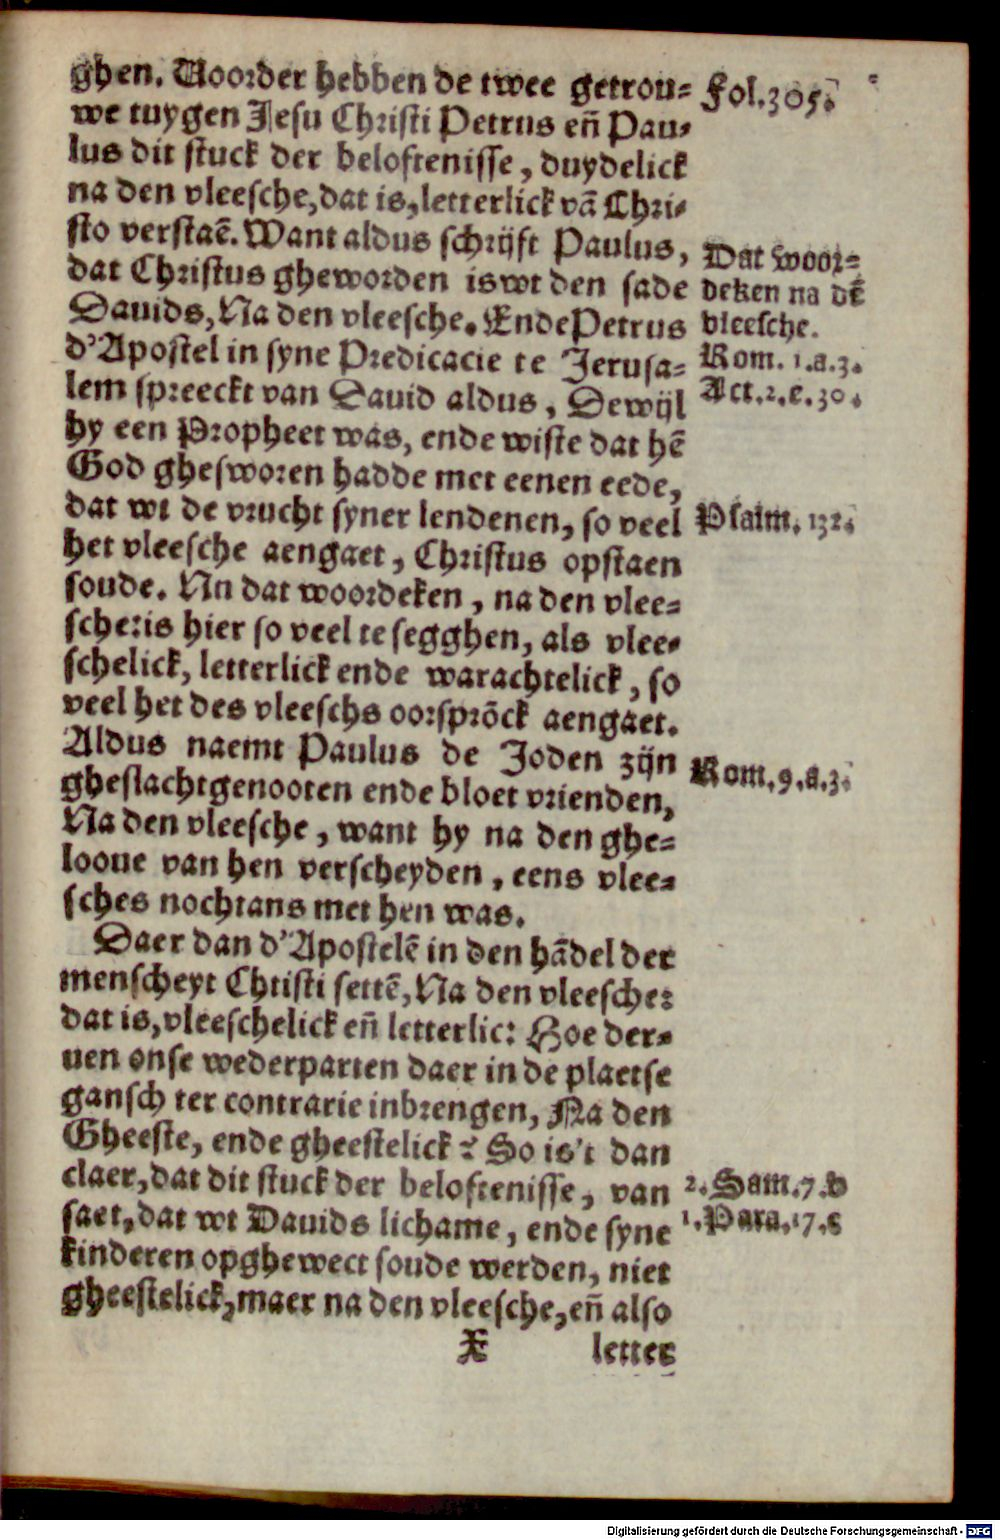 ghen. Voorder hebben de twee getrou⸗
we tuygen Jesu Christi Petrus eñ Pau⸗
lus dit stuck der beloftenisse, duydelick
na den vleesche, dat is, letterlick vā Chri⸗
sto verstaē. Want aldus schrijft Paulus,
dat Christus gheworden is wt den sade
Dauids, Na den vleesche. Ende Petrus
d'Apostel in syne Predicacie te Jerusa⸗
lem spreeckt van Dauid aldus, Dewijl
hy een Propheet was, ende wiste dat hē
God ghesworen hadde met eenen eede,
dat wt de vrucht syner lendenen, so veel
het vleesche aengaet, Christus opstaen
soude. Nu dat woordeken, na den vlee⸗
sche: is hier so veel te segghen, als vlee⸗
schelick, letterlick ende warachtelick, so
veel het des vleeschs oorsprōck aengaet.
Aldus naemt Paulus de Joden zijn
gheslachtgenooten ende bloet vrienden,
Na den vleesche, want hy na den ghe⸗
looue van hen verscheyden, eens vlee⸗
sches nochtans met hen was.
Daer dan d'Apostelē in den hādel der
menscheyt Christi settē, Na den vleesche:
dat is, vleeschelick eñ letterlic: Hoe der⸗
uen onse wederparten daer in de plaetse
gansch ter contrarie inbrengen, Na den
Gheeste, ende gheestelick? So is't dan
claer, dat dit stuck der beloftenisse, van
saet, dat wt Dauids lichame, ende syne
kinderen opghewect soude werden, niet
gheestelick, maer na den vleesche, eñ also
X letter
Fol. 305.
Dat woor⸗
deken na dē
vleesche.
Rom. 1.a.3.
Act. 2.e.30.
Psalm. 132.
Rom. 9.a.3.
2. Sam. 7.b
1. Para. 17.
Digitalisierung gefördert durch die Deutsche Forschungsgemeinschaft - DFG